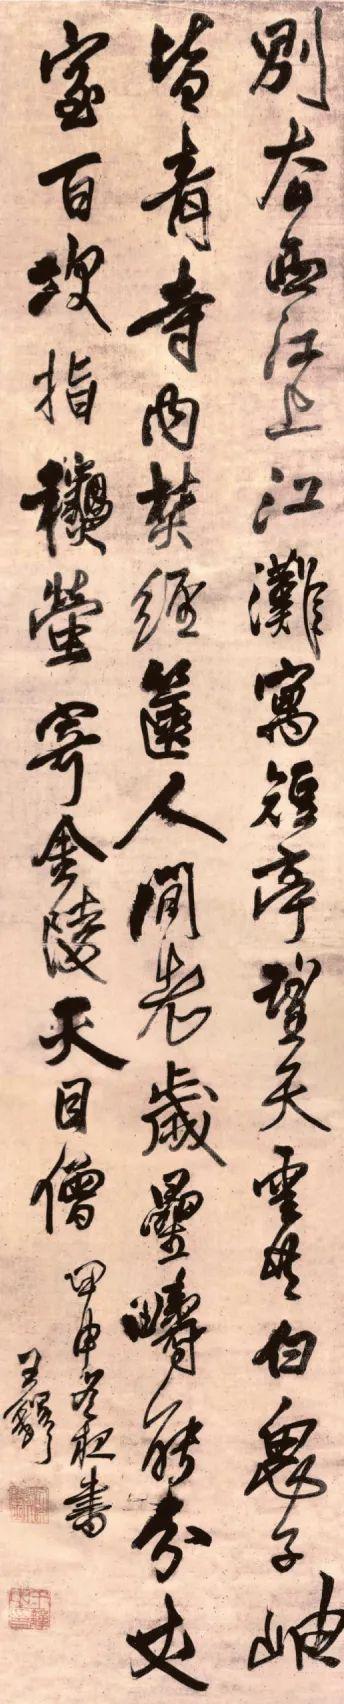 別在西江上江灘寓短亭望天雲共白鬼子岫
皆青寺內焚經篋人間老歲曐疇能分丈
室百指螢寄金陵天目僧
甲申冬夜書
王鐸